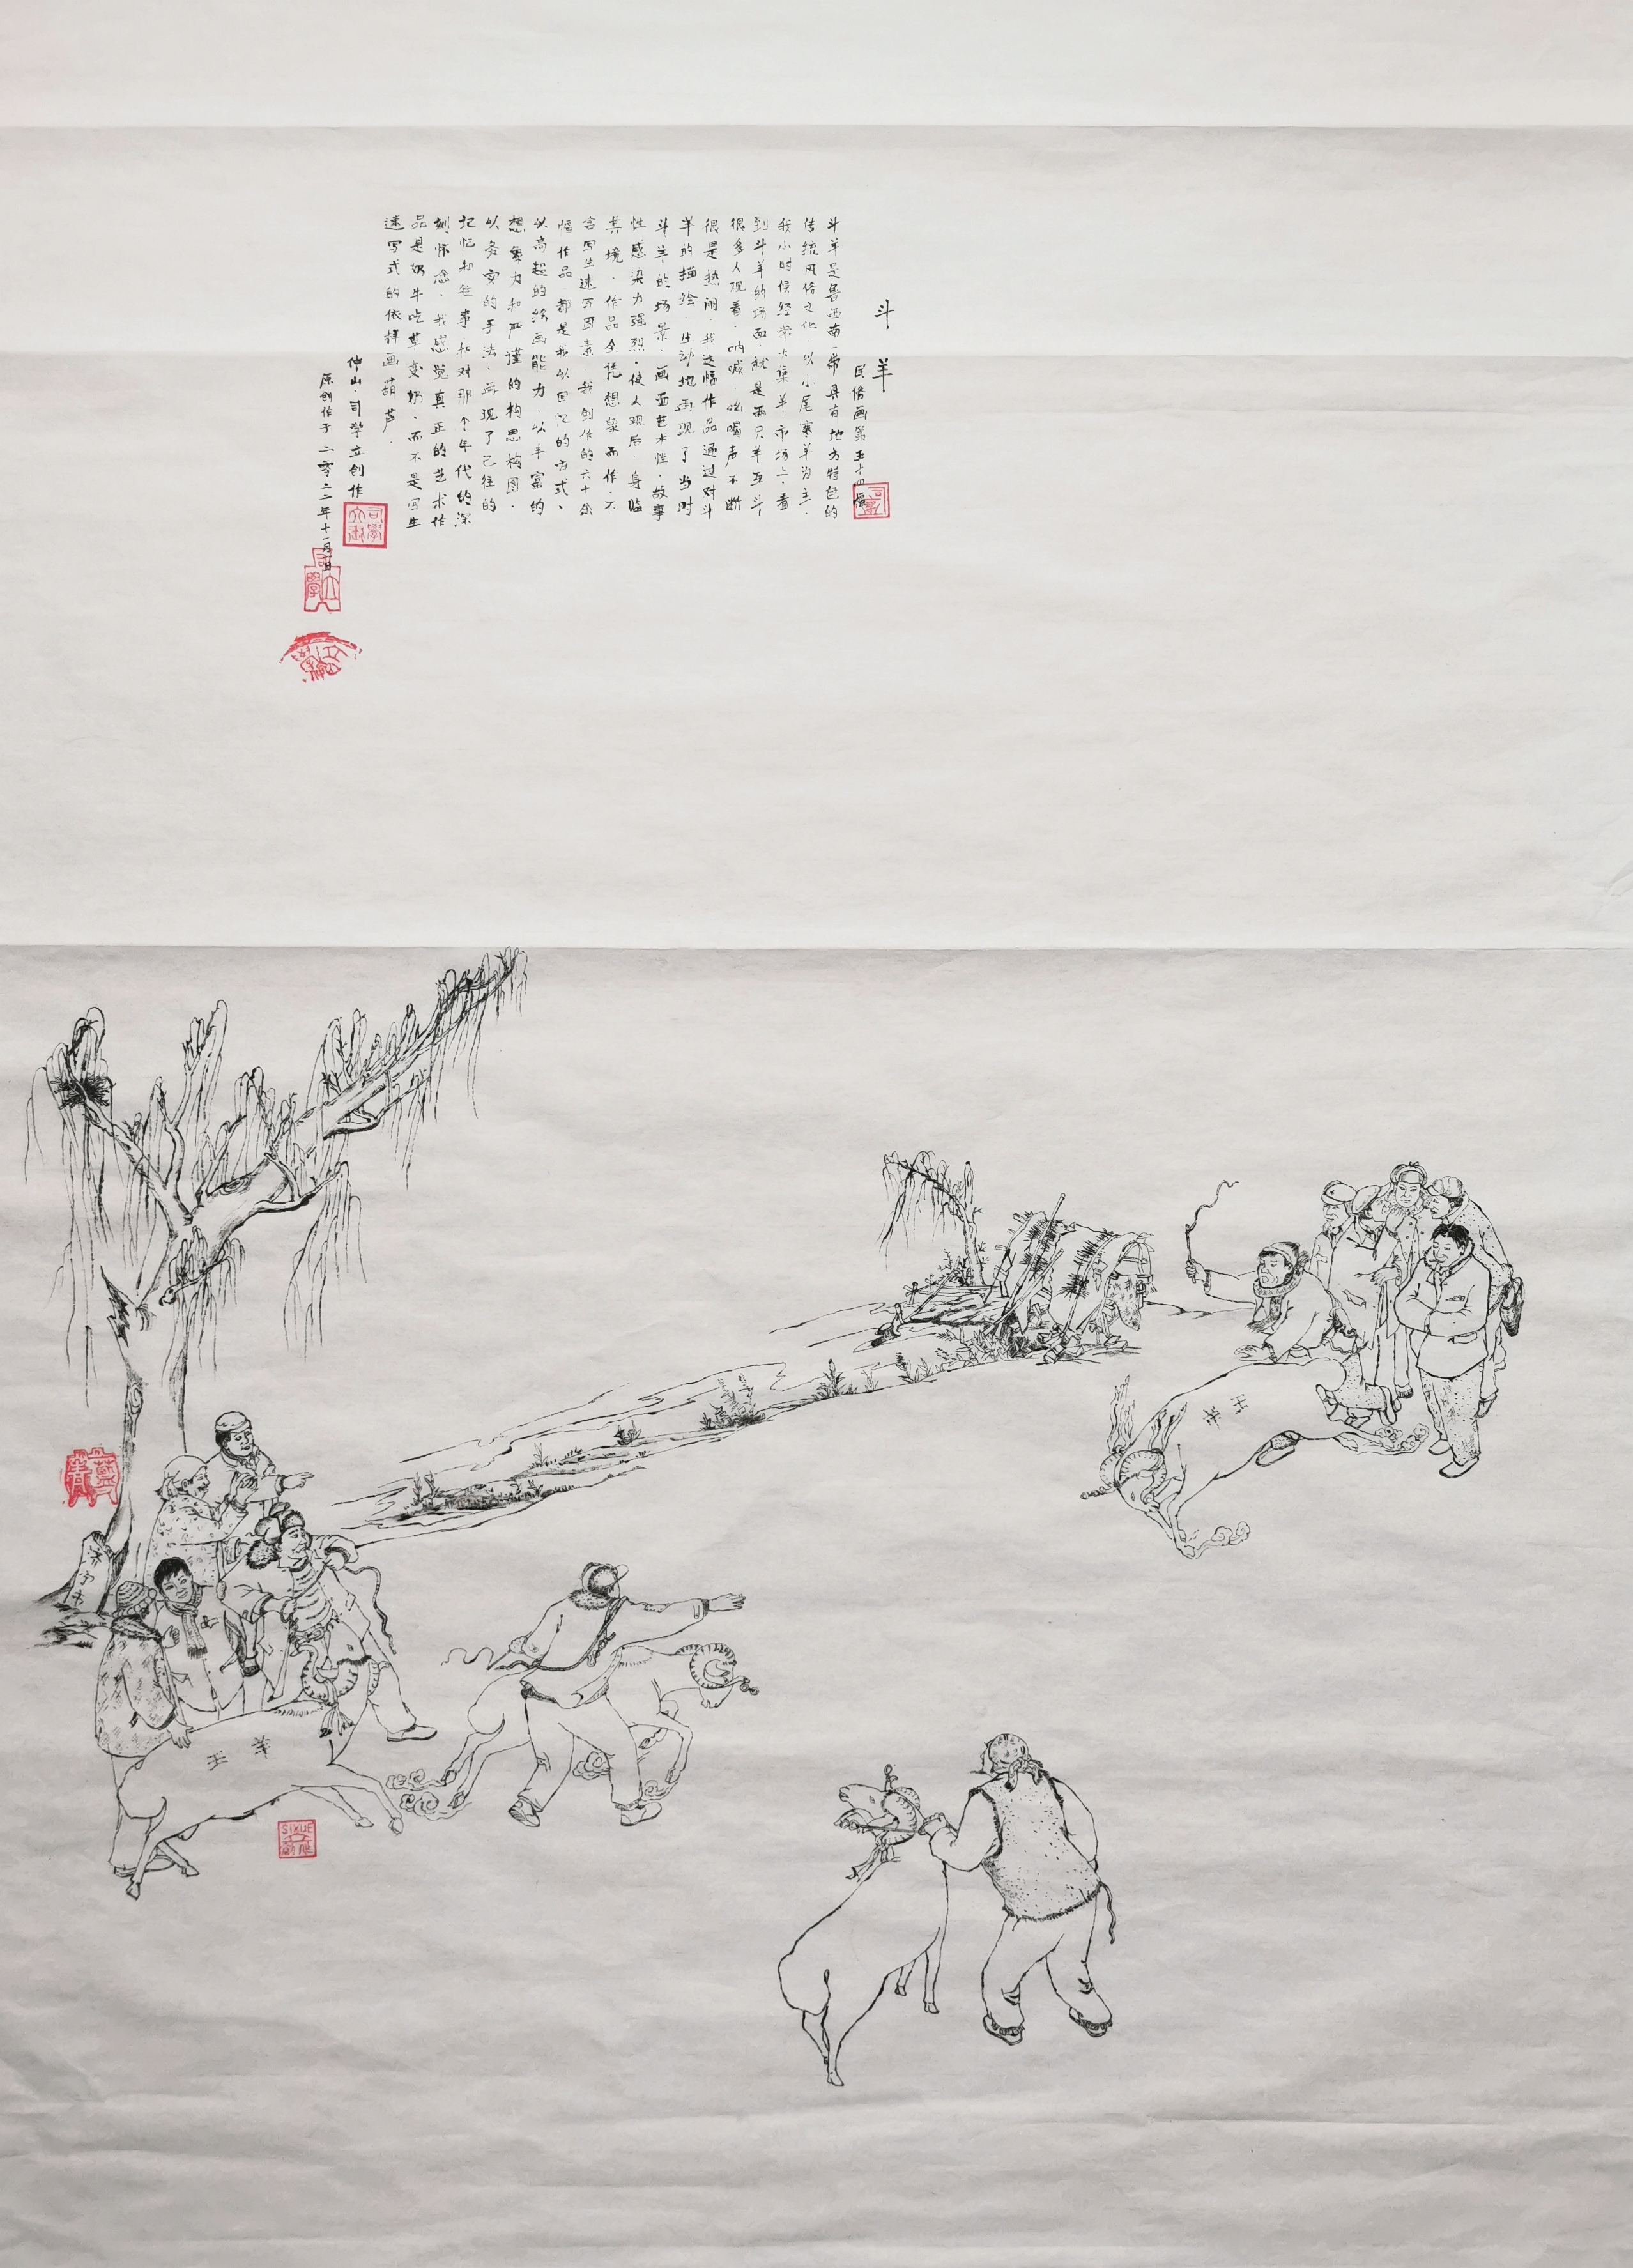 斗羊
民俗画第五十四幅
斗羊是鲁西南一带具有地方特色的
传统风俗文化，以小尾寒羊为主，
我小时候经常大集羊市场上，看
到斗羊的场面，就是两只羊互斗
很多人观看，呐喊，吆喝声不断
很是热闹，我这幅作品通过对斗
羊的描绘，生动地画现了当时
斗羊的场景，画面艺术性，故事
性感染力强烈，使人观后，身临
其境，作品全凭想象而作，不
含写生速写因素，我创作的六十余
幅作品，都是我以回忆的方式、
以高超的绘画能力，以丰富的
想象力和严谨的构思构图，
以务实的手法，再现了已往的
记忆和往事，和对那个年代的深
刻怀念，我感觉真正的艺术作
品是奶牛吃草变奶，而不是写生
速写式的依样画葫芦，
仲山司学立创作
原创作于二零二二年十一月
羊王
SIXUE